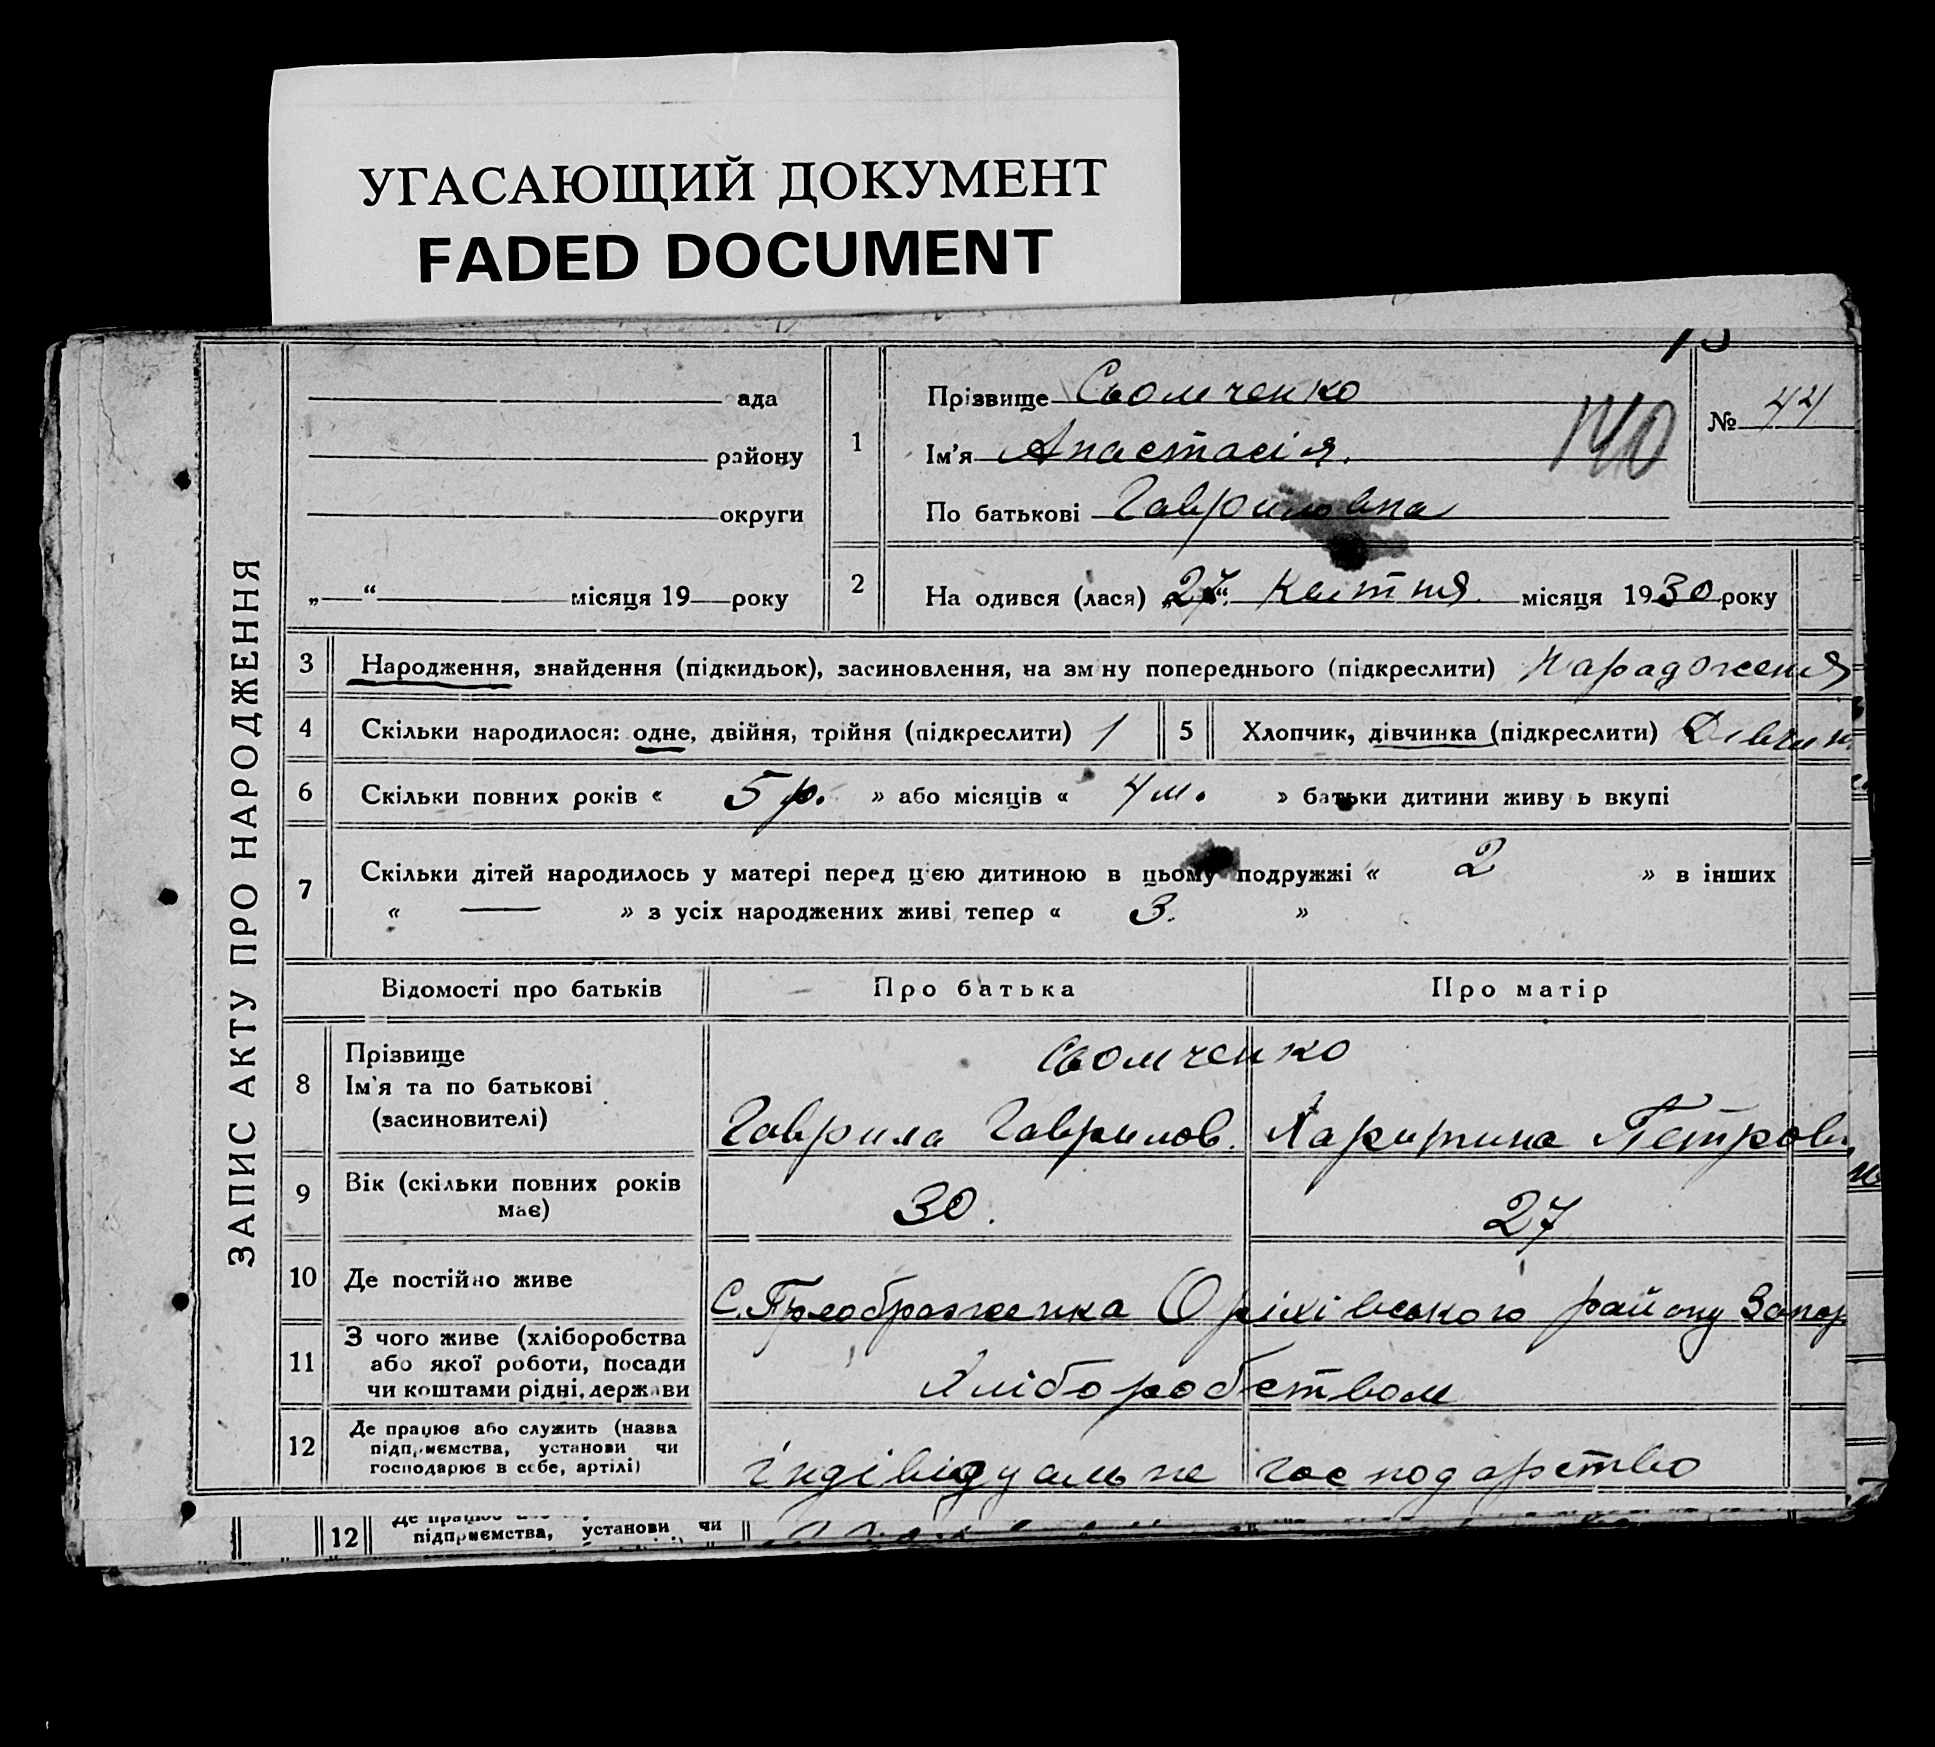 УГАСАЮЩИЙ ДОКУМЕНТ
FADED DOCUMENT
ЗАПИС АКТУ ПРО НАРОДЖЕННЯ
ада
району
округи
„ “ місяця 19 року
1
Прізвище Сьомченко
Ім'я Анастасія.
По батькові Гавриловна
140
№ 44
2
На одився (лася) „27“ Квітня місяця 1930 року
3 Народження, знайдення (підкидьок), засиновлення, на зм ну попереднього (підкреслити) Нарадження
4 Скільки народилося: одне, двійня, трійня (підкреслити) 1
5 Хлопчик, дівчинка (підкреслити) Дівчин
6 Скільки повних років « 5 р. » або місяців « 4 м. » батьки дитини живу ь вкупі
7 Скільки дітей народилось у матері перед ц'єю дитиною в цьому подружжі « 2 » в інших
« — » з усіх народжених живі тепер « 3. »
Відомості про батьків Про батька Про матір
8 Прізвище
Ім'я та по батькові
(засиновителі)
Сьомченко
Гаврила Гаврилов. Харитина Петровн
9 Вік (скільки повних років
має)
30. 27
10 Де постійно живе С. Преображенка Оріхівського району Запор
11 З чого живе (хліборобства
або якої роботи, посади
чи коштами рідні, держави
Хліборобством
12 Де працює або служить (назва
підприємства, установи чи
господарює в себе, артілі)
індівідуальне господарство
12 Де працює
підприємства, установи чи